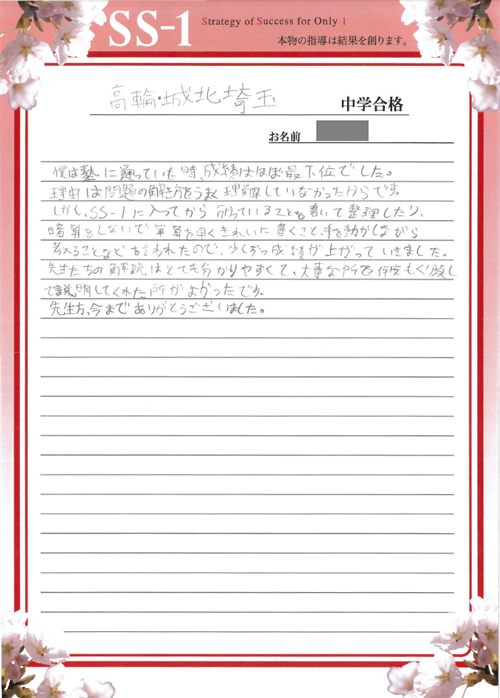 SS-1
Strategy of Success for Only 1
本物の指導は結果を創ります。
高輪・城北埼玉 中学合格
お名前
僕は塾に通っていた時、成績はほぼ最下位でした。
理由は問題の解き方をうまく理解していなかったからです。
しかし、SS-1に入ってから分っていることを書いて整理したり、
暗算をしないで筆算を早くきれいに書くこと、手を動かしながら
考えることなどを言われたので、少しずつ成績が上がっていきました。
先生たちの解説はとても分かりやすくて、大事な所を何度もくり返し
て説明してくれた所がよかったです。
先生方、今までありがとうございました。